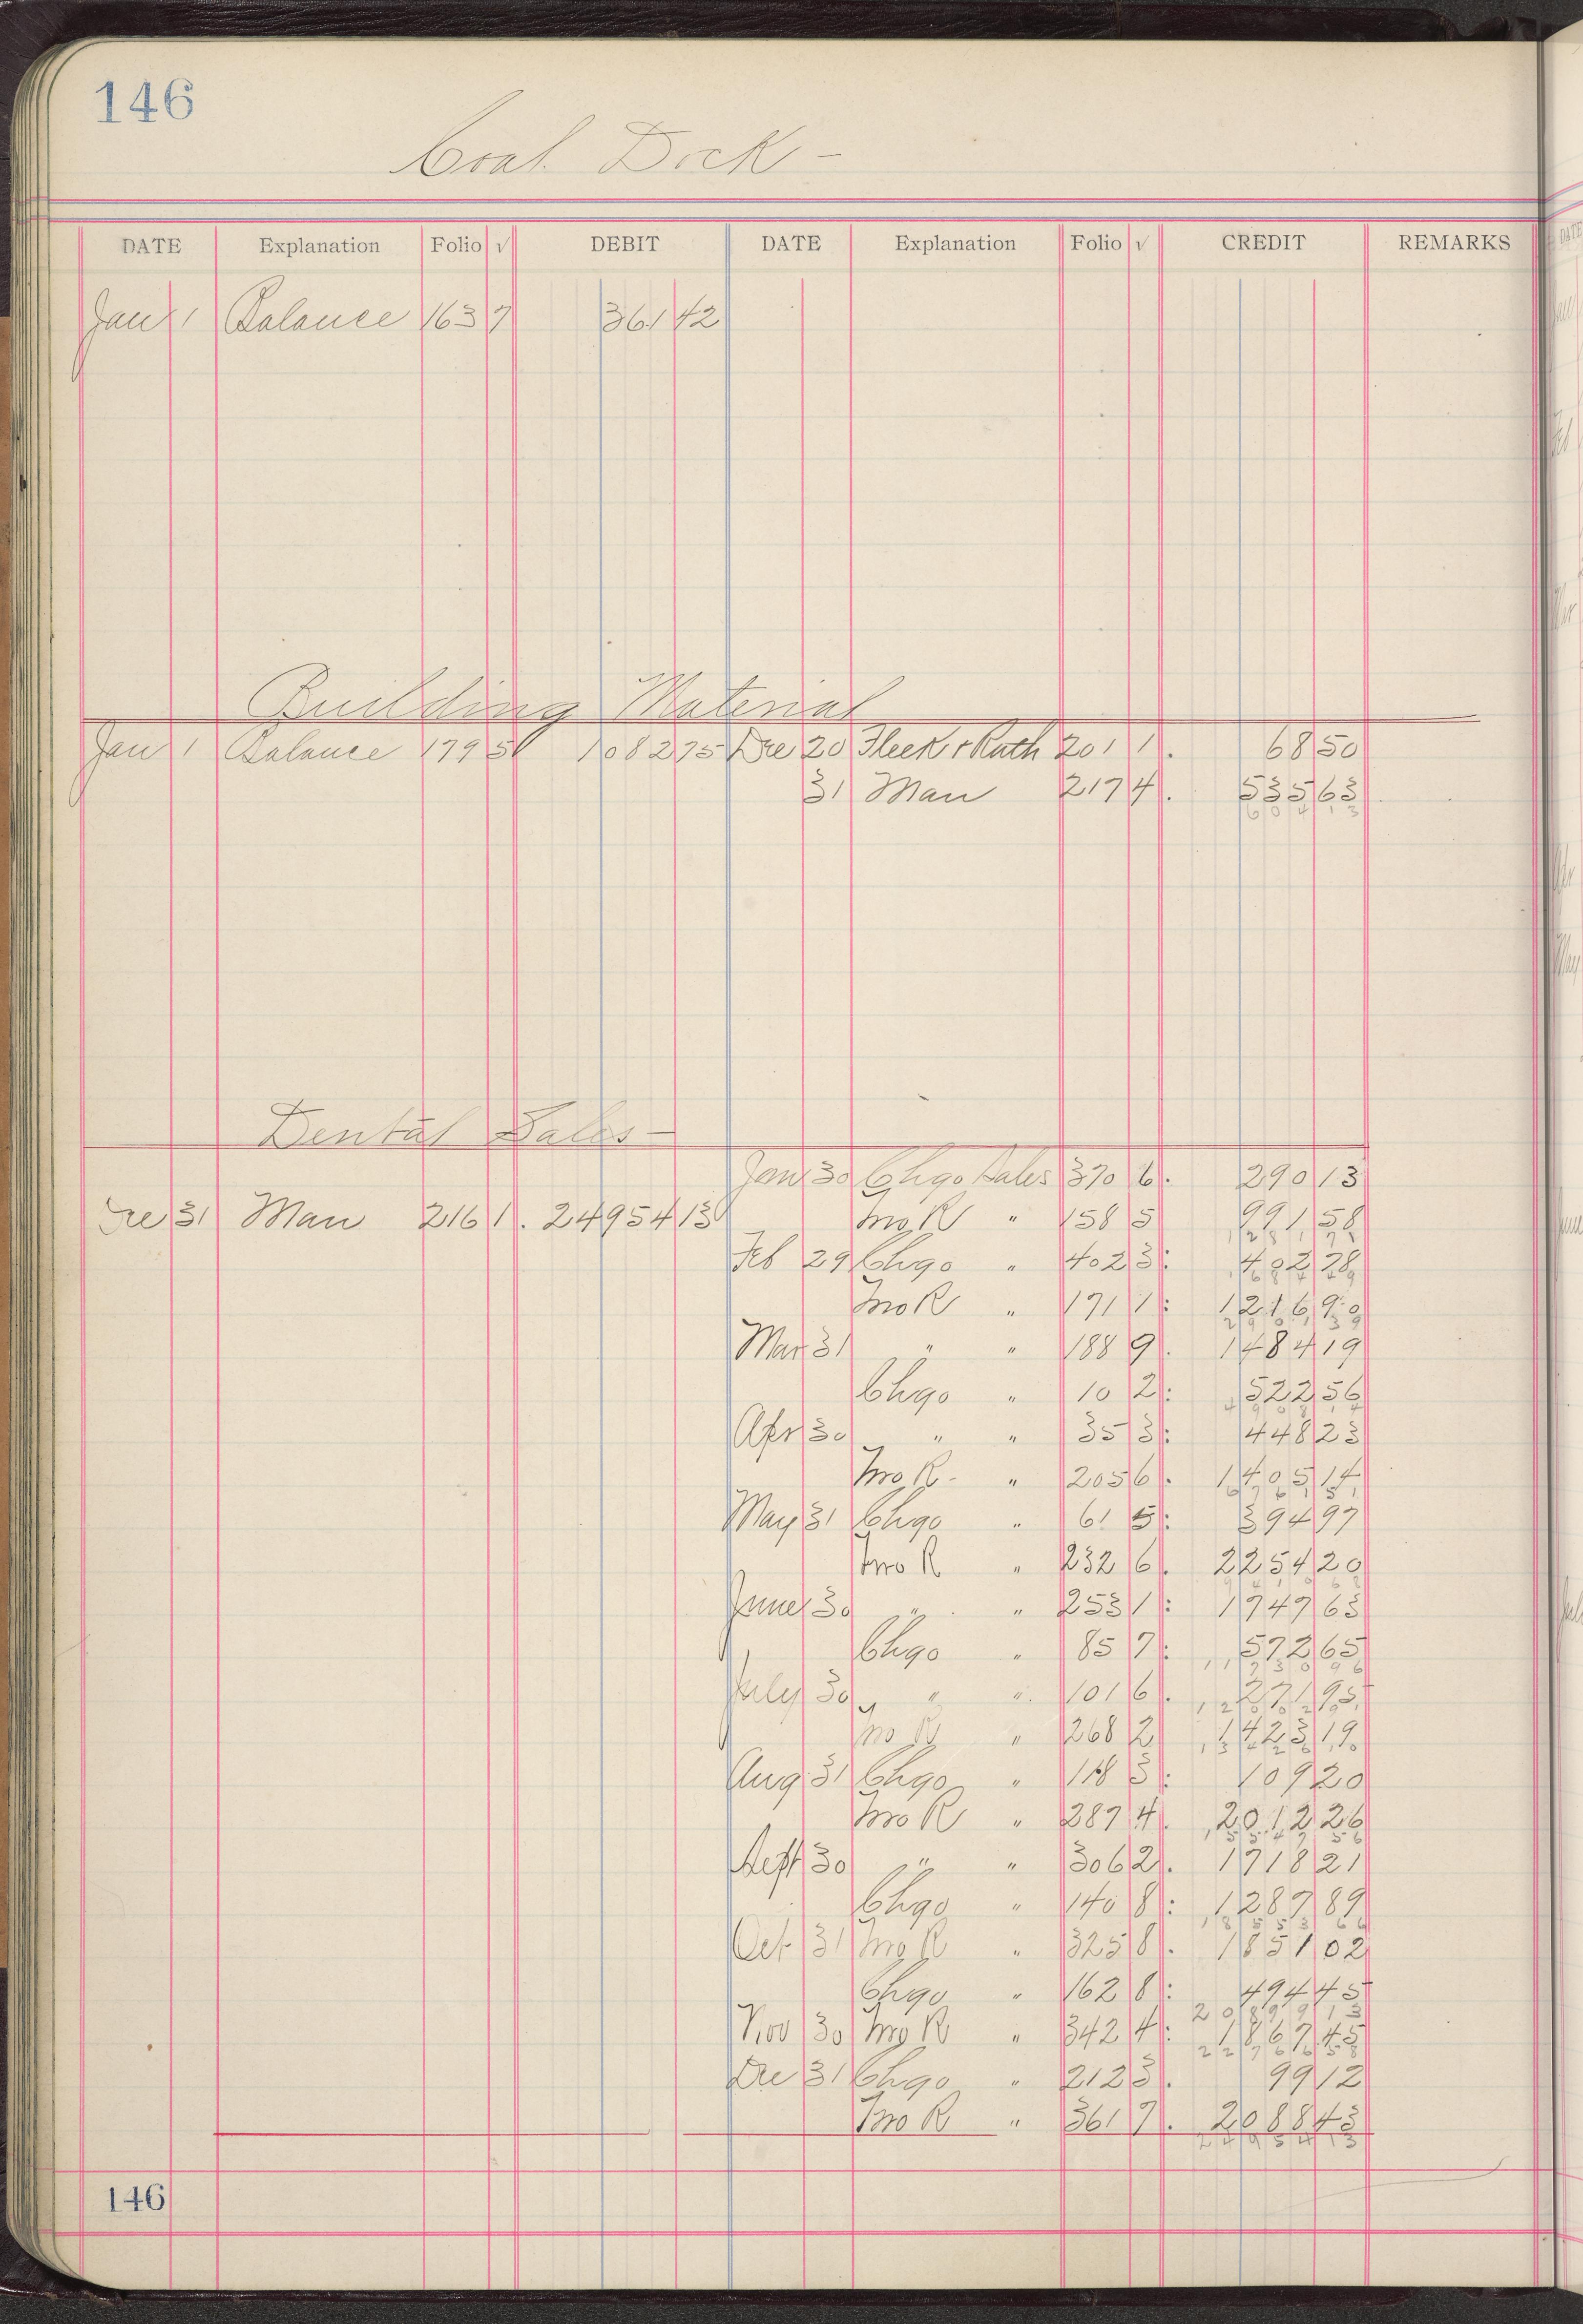 146
Coal Dock -
DATE Explanation Folio √ DEBIT DATE Explanation Folio √ CREDIT REMARKS
Jan 1 Balance 163 7 361 42
Building Material
Jan 1 Balance 179 5 1082 75 Dec 20 Fleek & Rath 201 1 . 68 50
31 Man 217 4 . 535 63
604 13
Dental Sales -
Jan 30 Chgo Sales 370 6 . 290 13
Dec 31 Man 216 1 . 24954 13 Mo R " 158 5 991 58
Feb 29 Chgo " 402 3 : 402 78
Mo R " 171 1 : 1216 90
Mar 31 " " 188 9 . 1484 19
Chgo " 10 2 : 522 56
Apr 30 " " 35 3 : 448 23
Mo R - " 205 6 . 1405 14
May 31 Chgo " 61 5 : 394 97
Mo R " 232 6 . 2254 20
June 30 " " 253 1 : 1747 63
Chgo " 85 7 : 572 65
July 30 " " 101 6 . 271 95
Mo R " 268 2 1423 19
Aug 31 Chgo " 118 3 : 109 20
Mo R " 287 4 . 2012 26
Sept 30 " " 306 2 . 1718 21
Chgo " 140 8 : 1287 89
Oct 31 Mo R " 325 8 . 1851 02
Chgo " 162 8 : 494 45
20899 13
Nov 30 Mo R " 342 4 : 1867 45
22766 58
Dec 31 Chgo " 212 3 . 99 12
Mo R " 361 7 . 2088 43
24954 13
146